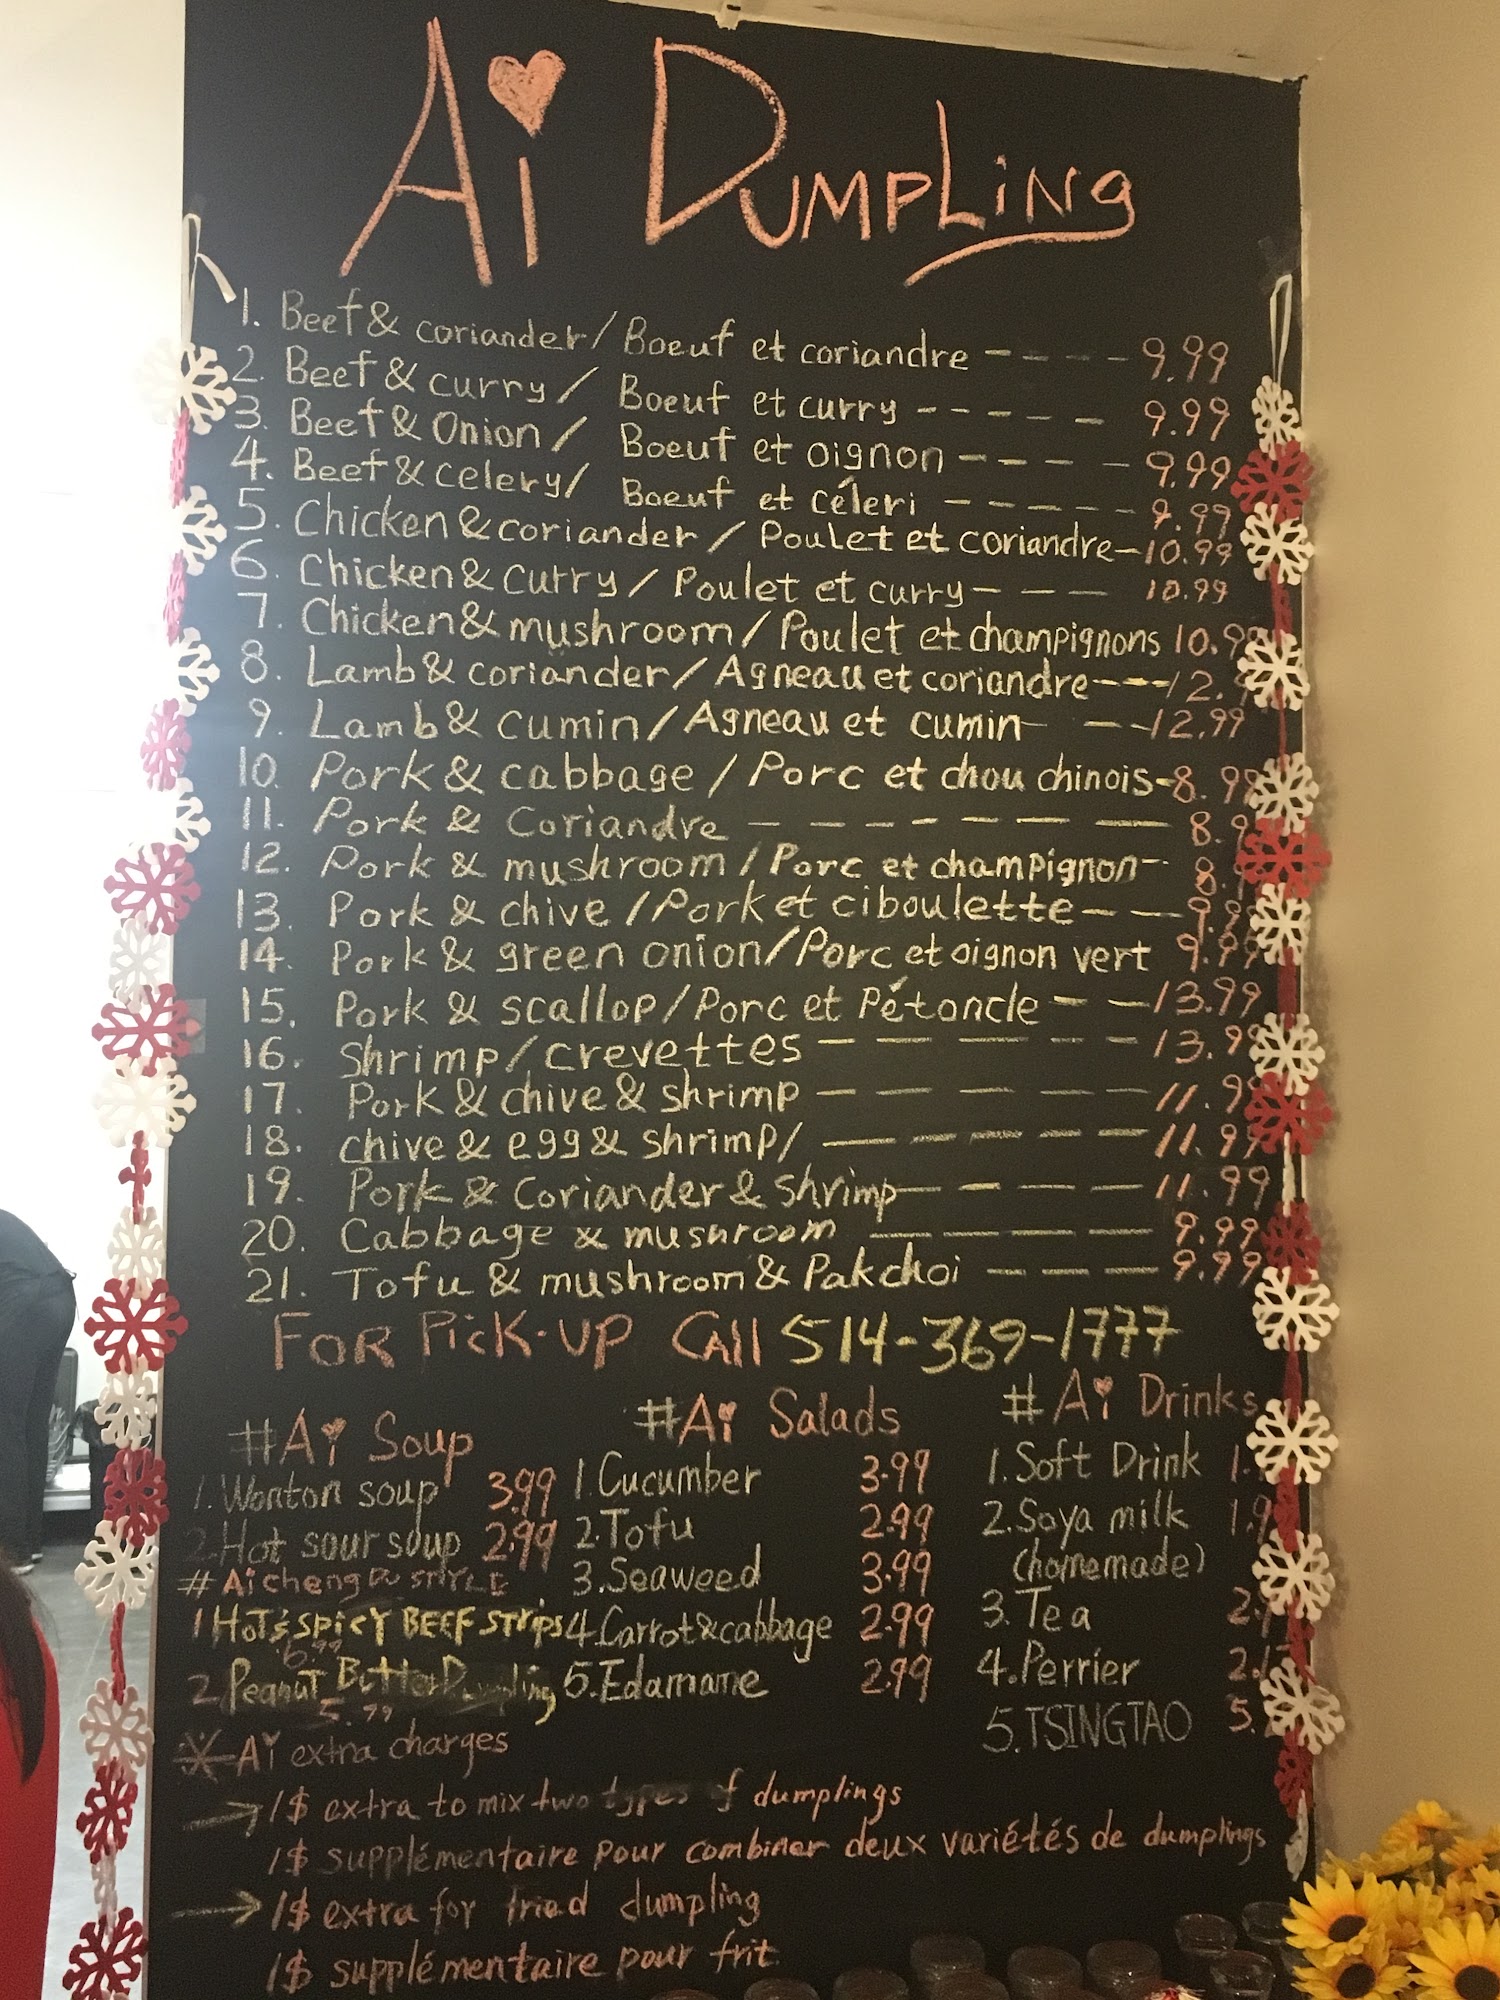 Ai DUMPLiNG
1. Beef & coriander / Boeuf et coriandre - - - - 9.99
2. Beef & curry / Boeuf et curry - - - - - 9.99
3. Beef & Onion / Boeuf et oignon - - - - - 9.99
4. Beef & celery / Boeuf et céleri - - - - - 9.99
5. Chicken & coriander / Poulet et coriandre - 10.99
6. Chicken & curry / Poulet et curry - - - - 10.99
7. Chicken & mushroom / Poulet et champignons 10.99
8. Lamb & coriander / Agneau et coriandre - - - 12.
9. Lamb & cumin / Agneau et cumin - - - 12.99
10. Pork & cabbage / Porc et chou chinois - 8.99
11. Pork & Coriandre - - - - - - - - 8.9
12. Pork & mushroom / Porc et champignon - - 8.
13. Pork & chive / Pork et ciboulette - - - 9.99
14. Pork & green onion / Porc et oignon vert 9.99
15. Pork & scallop / Porc et Pétoncle - - - 13.99
16. Shrimp / crevettes - - - - - - - 13.9
17. Pork & chive & shrimp - - - - - 11.99
18. chive & egg & shrimp / - - - - - 11.99
19. Pork & Coriander & shrimp - - - - 11.99
20. Cabbage & mushroom - - - - 9.99
21. Tofu & mushroom & Pakchoi - - - - 9.99
FOR PiCK-UP CAll 514-369-1777
#Ai Soup
1. Wonton soup 3.99
2. Hot sour soup 2.99
# Ai cheng Du STYLE
1 HOT & SPICY BEEF STrips
6.99
2. Peanut Butter Dumpling
5.99
#Ai Salads
1. Cucumber 3.99
2. Tofu 2.99
3. Seaweed 3.99
4. Carrot & cabbage 2.99
5. Edamame 2.99
# Ai Drinks
1. Soft Drink 1.
2. Soya milk 1.9
(homemade)
3. Tea 2.
4. Perrier 2.
5. TSINGTAO 5.
* Ai extra charges
→ 1$ extra to mix two types of dumplings
1$ supplémentaire pour combiner deux variétés de dumplings
→ 1$ extra for fried dumpling
1$ supplémentaire pour frit